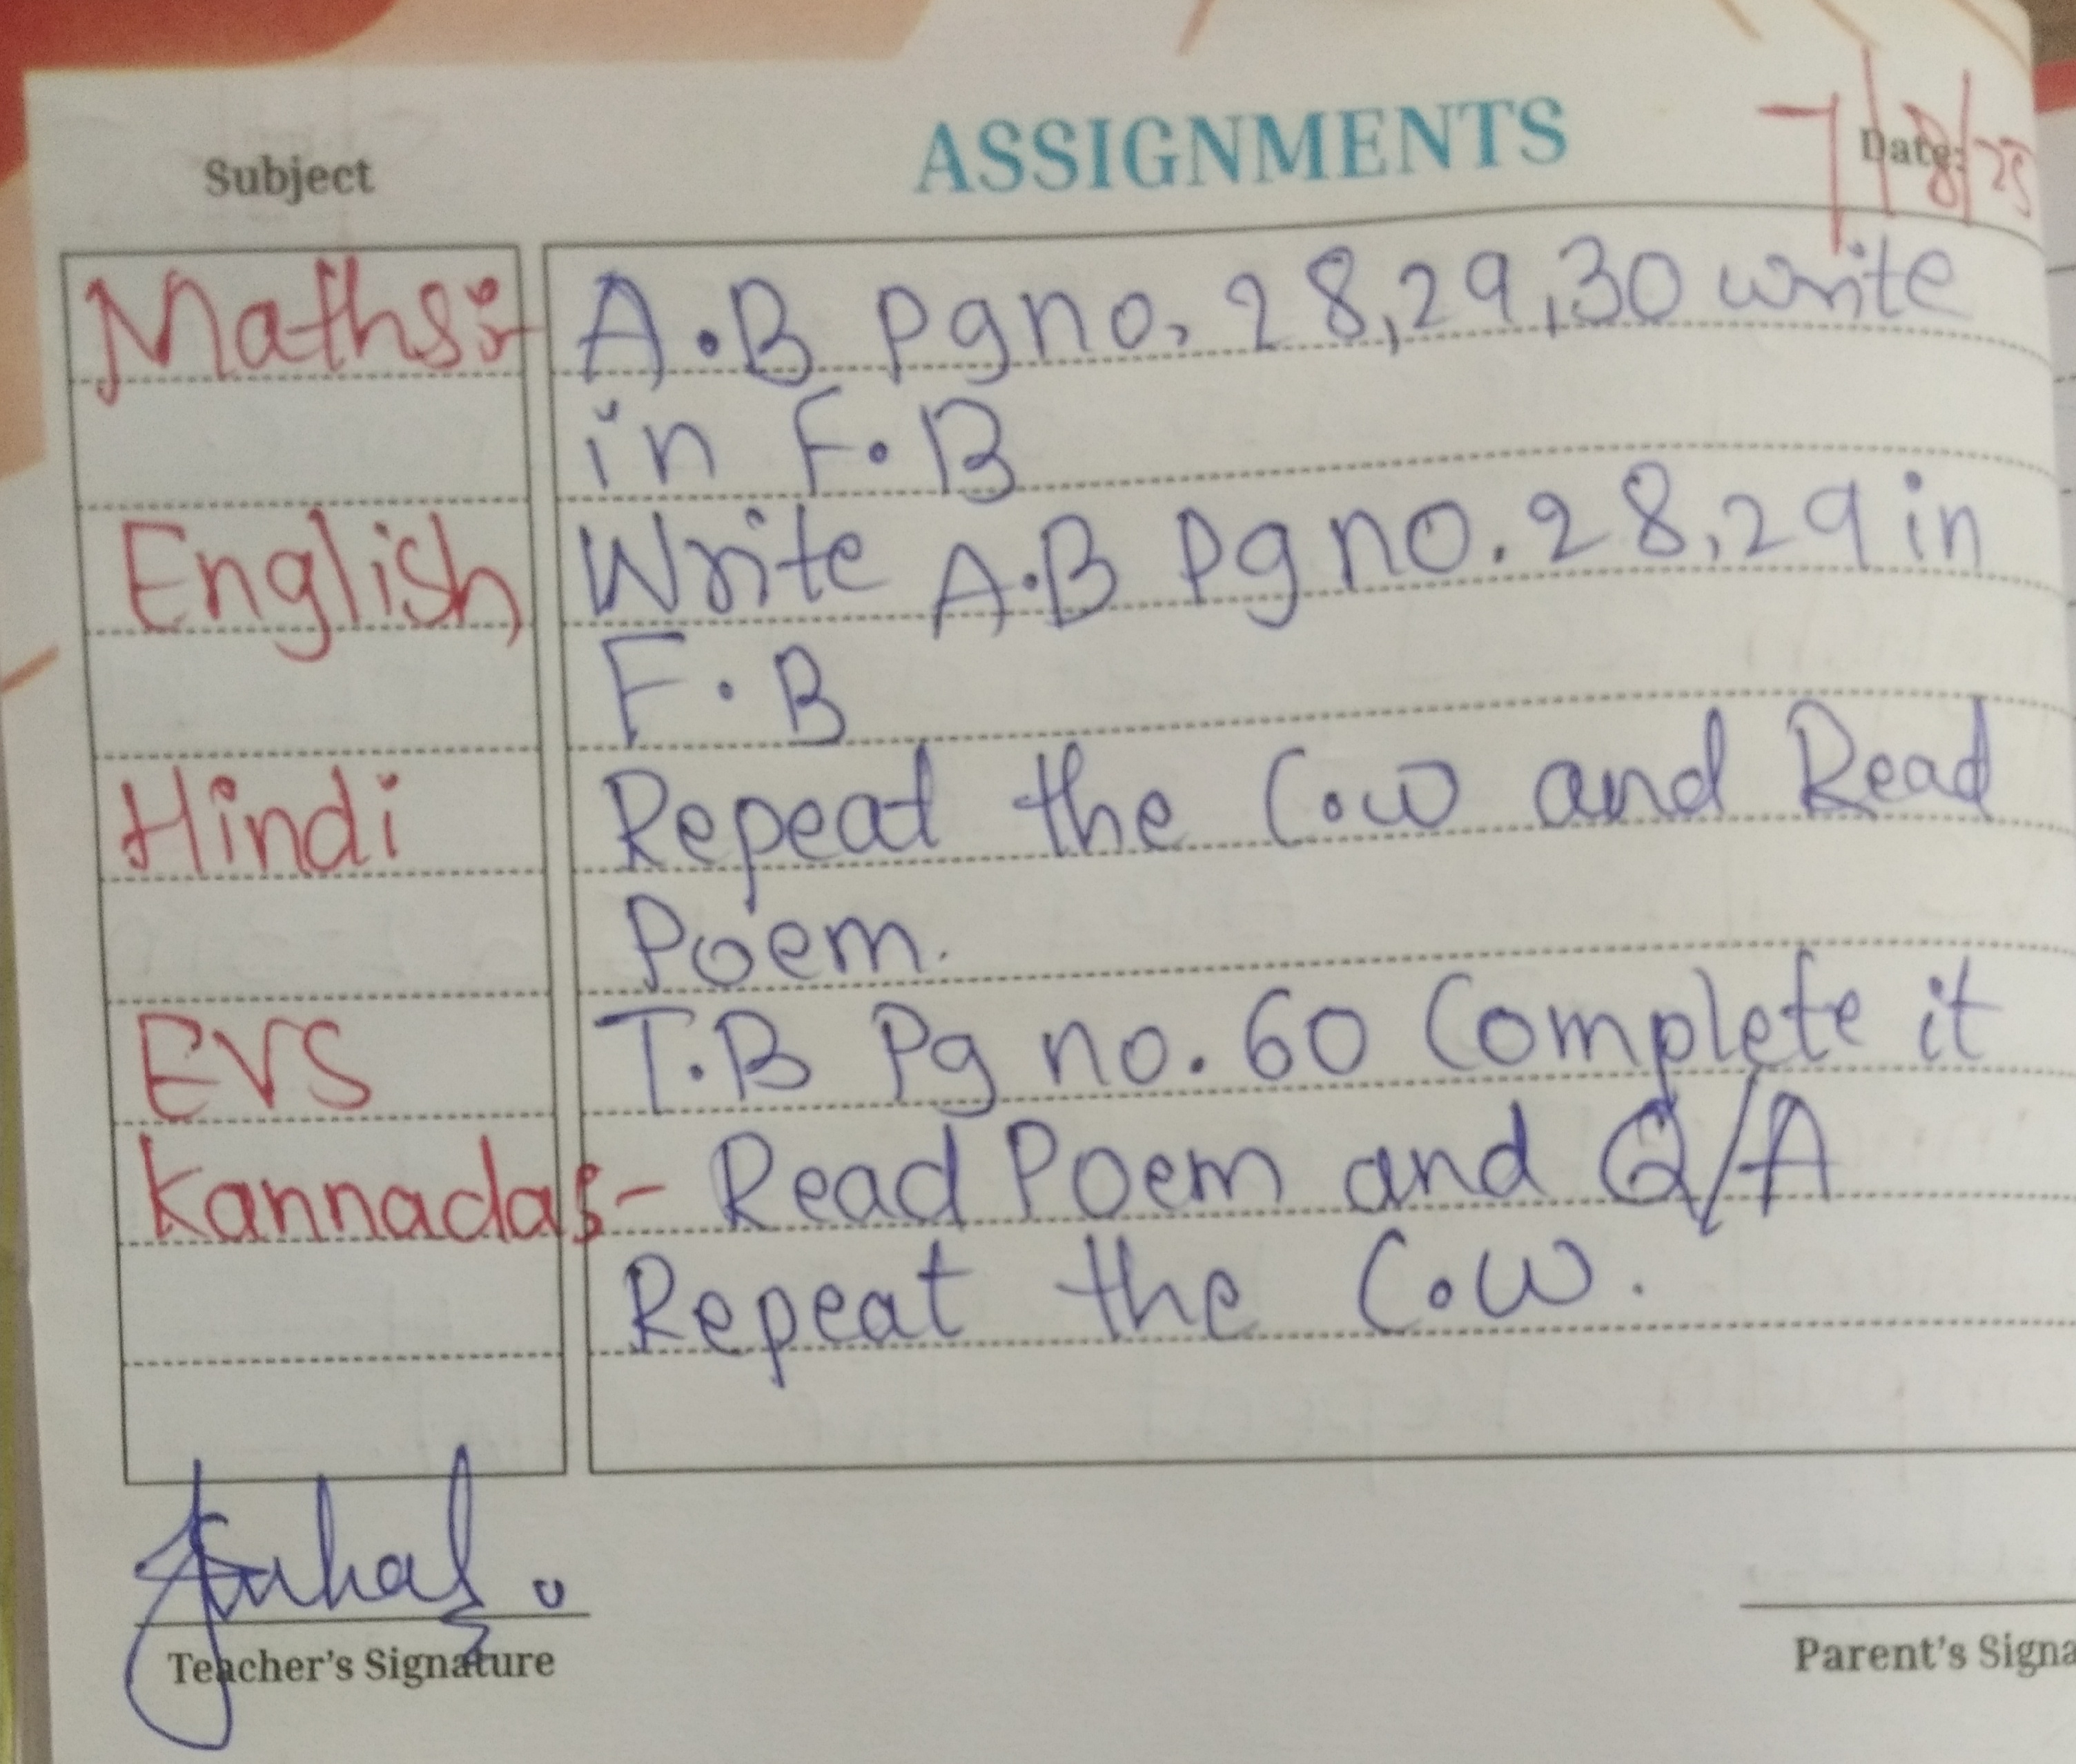 Subject ASSIGNMENTS Date: 7/8/25
Maths:- A.B Pg no. 28,29,30 write
in F.B
English Write A.B Pg no. 28,29 in
F.B
Hindi Repeat the C.W and Read
Poem.
EVS T.B Pg no. 60 Complete it
Kannada:- Read Poem and Q/A
Repeat the C.W.
Teacher's Signature Parent's Signa